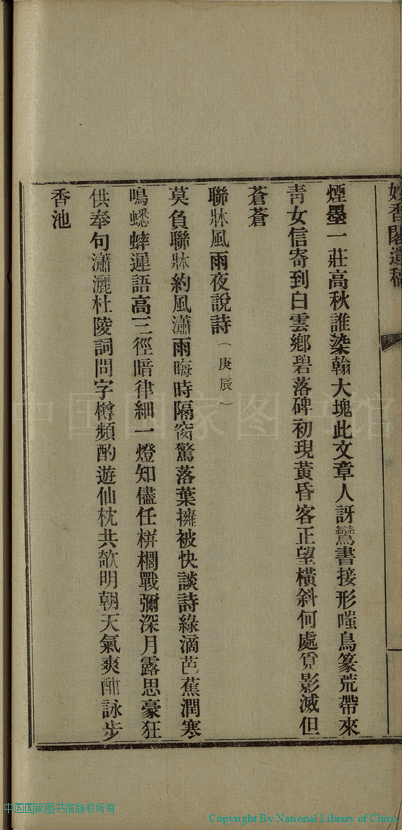 煙墨一莊高秋誰染翰大塊此文章人訝鸞書接形嗤鳥篆荒帶來
靑女信寄到白雲鄉碧落碑初現黃昏客正望橫斜何處覓影滅但
蒼蒼
聯牀風雨夜說詩（庚辰）
莫負聯牀約風瀟雨晦時隔窗驚落葉擁被快談詩綠滴芭蕉潤寒
鳴蟋蟀遲語高三徑暗律細一燈知儘任棋櫚戰彌深月露思豪狂
供奉句瀟灑杜陵詞問字樽頻酌遊仙枕共欹明朝天氣爽酣詠步
香池
中国国家图书馆
中国国家图书馆版权所有
Copyright By National Library of China